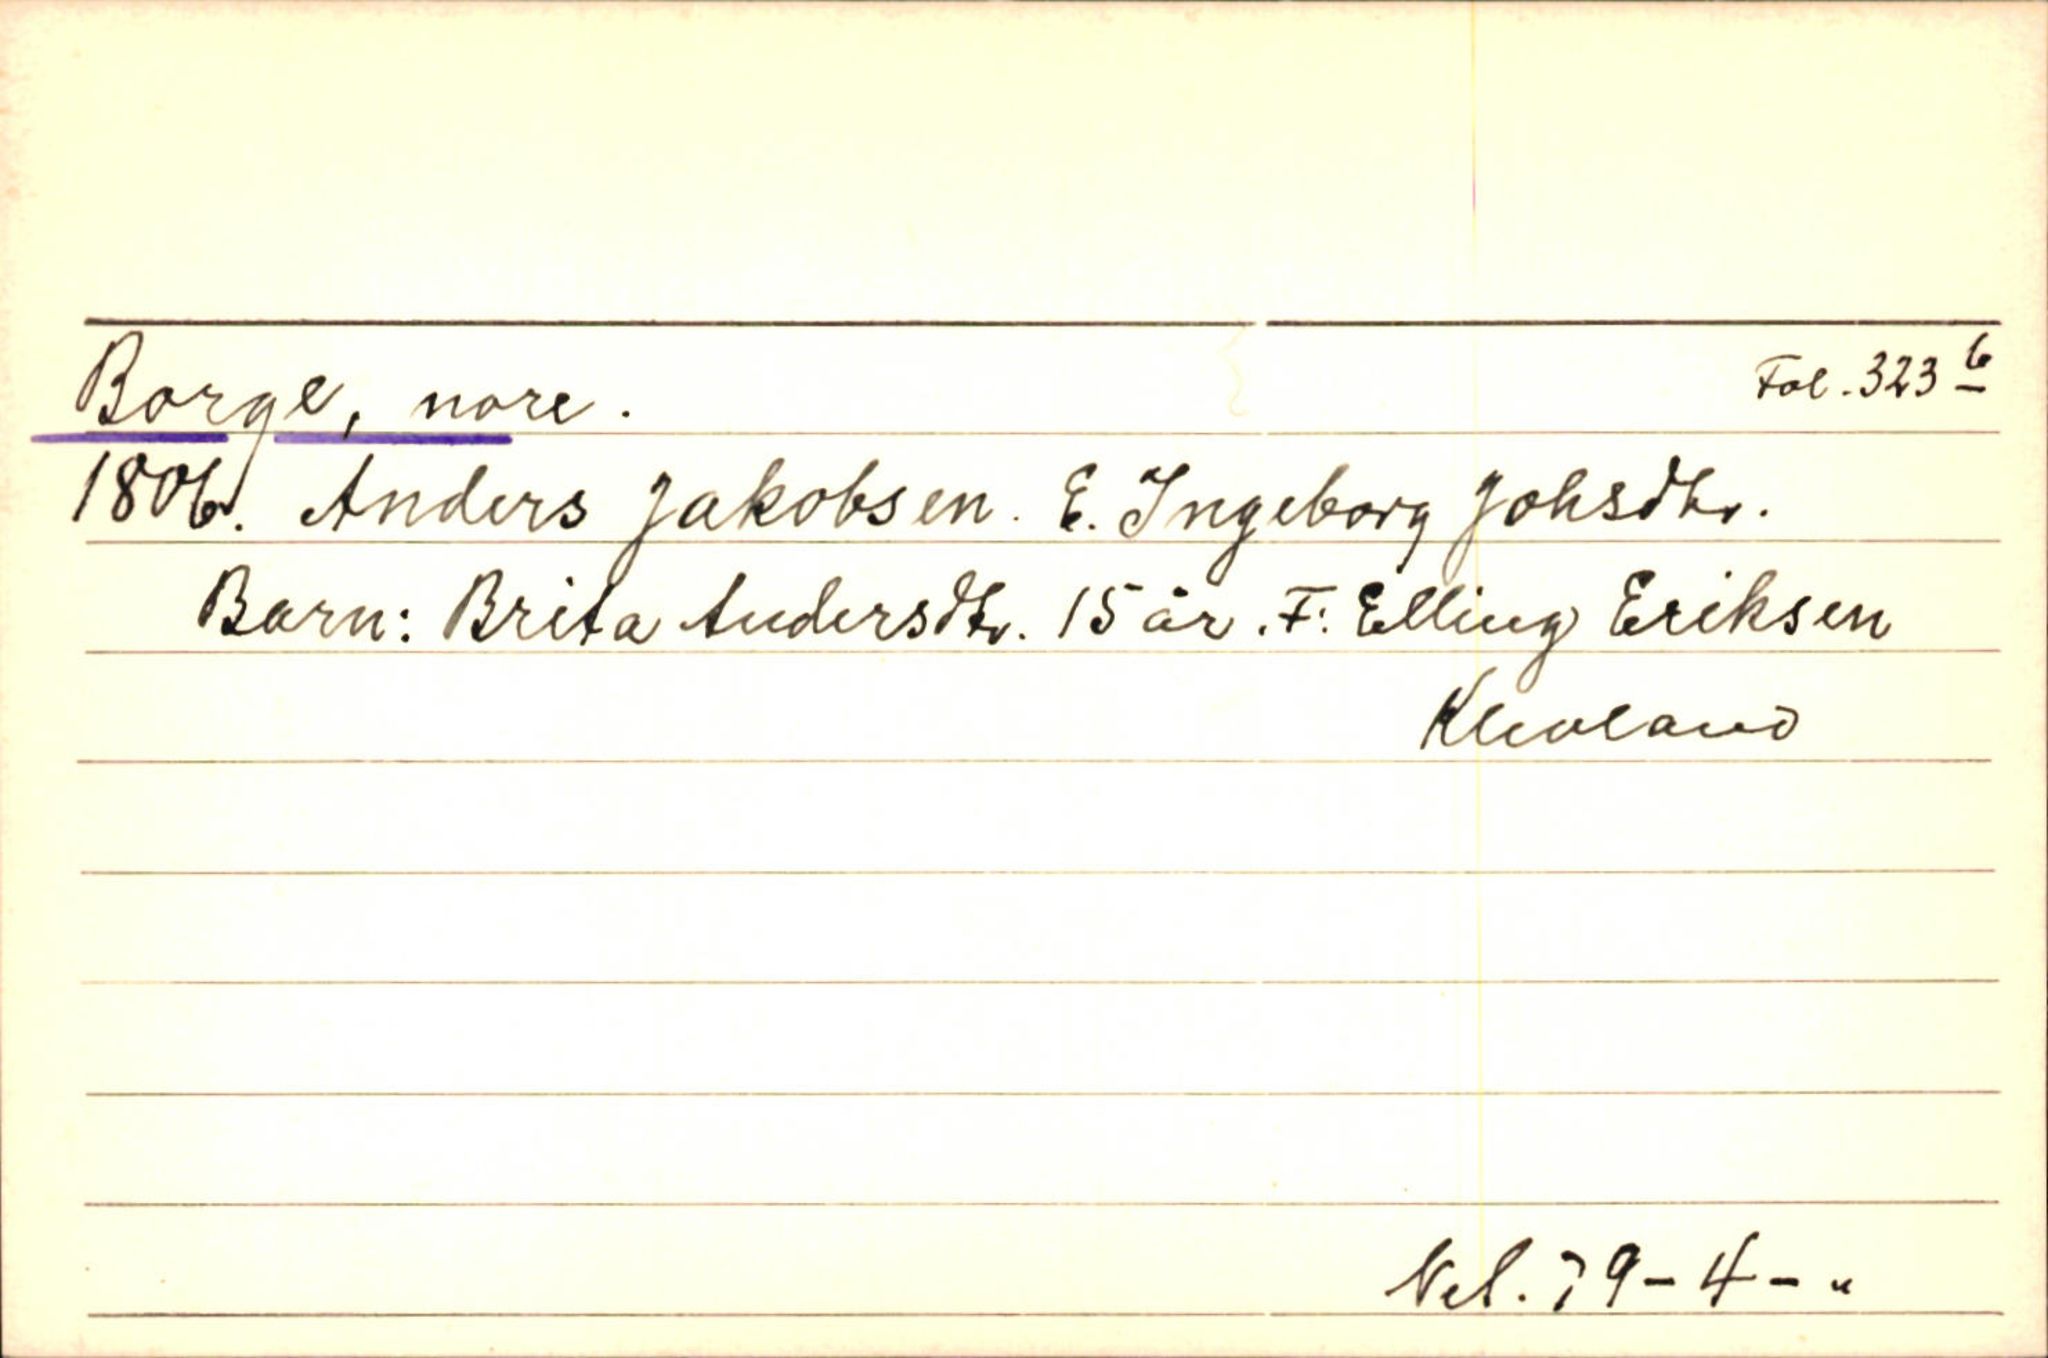 Borge, nore. Fol. 323 b
1806. Anders Jakobsen. E. Ingeborg Johsdtr.
Barn: Brita Andersdtr. 15 år. F: Elling Eriksen
Kleveland
Nel. 79-4-"